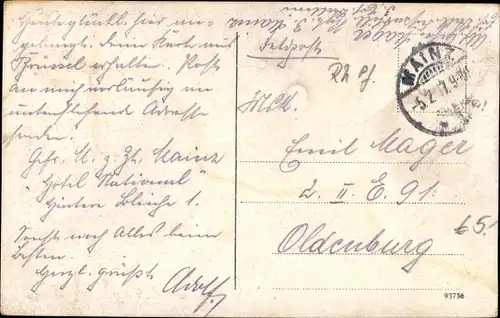 Heute glückl. hier an-
gelangt. Deine Karte aus
Brüssel erhalten. Post
an mich vorläufig an
untenstehende Adresse
senden.
Gefr. M. z. Zt. Mainz
"Hotel National"
Hintere Bleiche 1.
Sonst noch Alles beim
Besten.
Herzl. grüßt
Adolf
Feldpost
Rh Pf.
MAINZ
-5.2.
Emil Mager
2. II. E. 91.
Oldenburg
65.-
93736